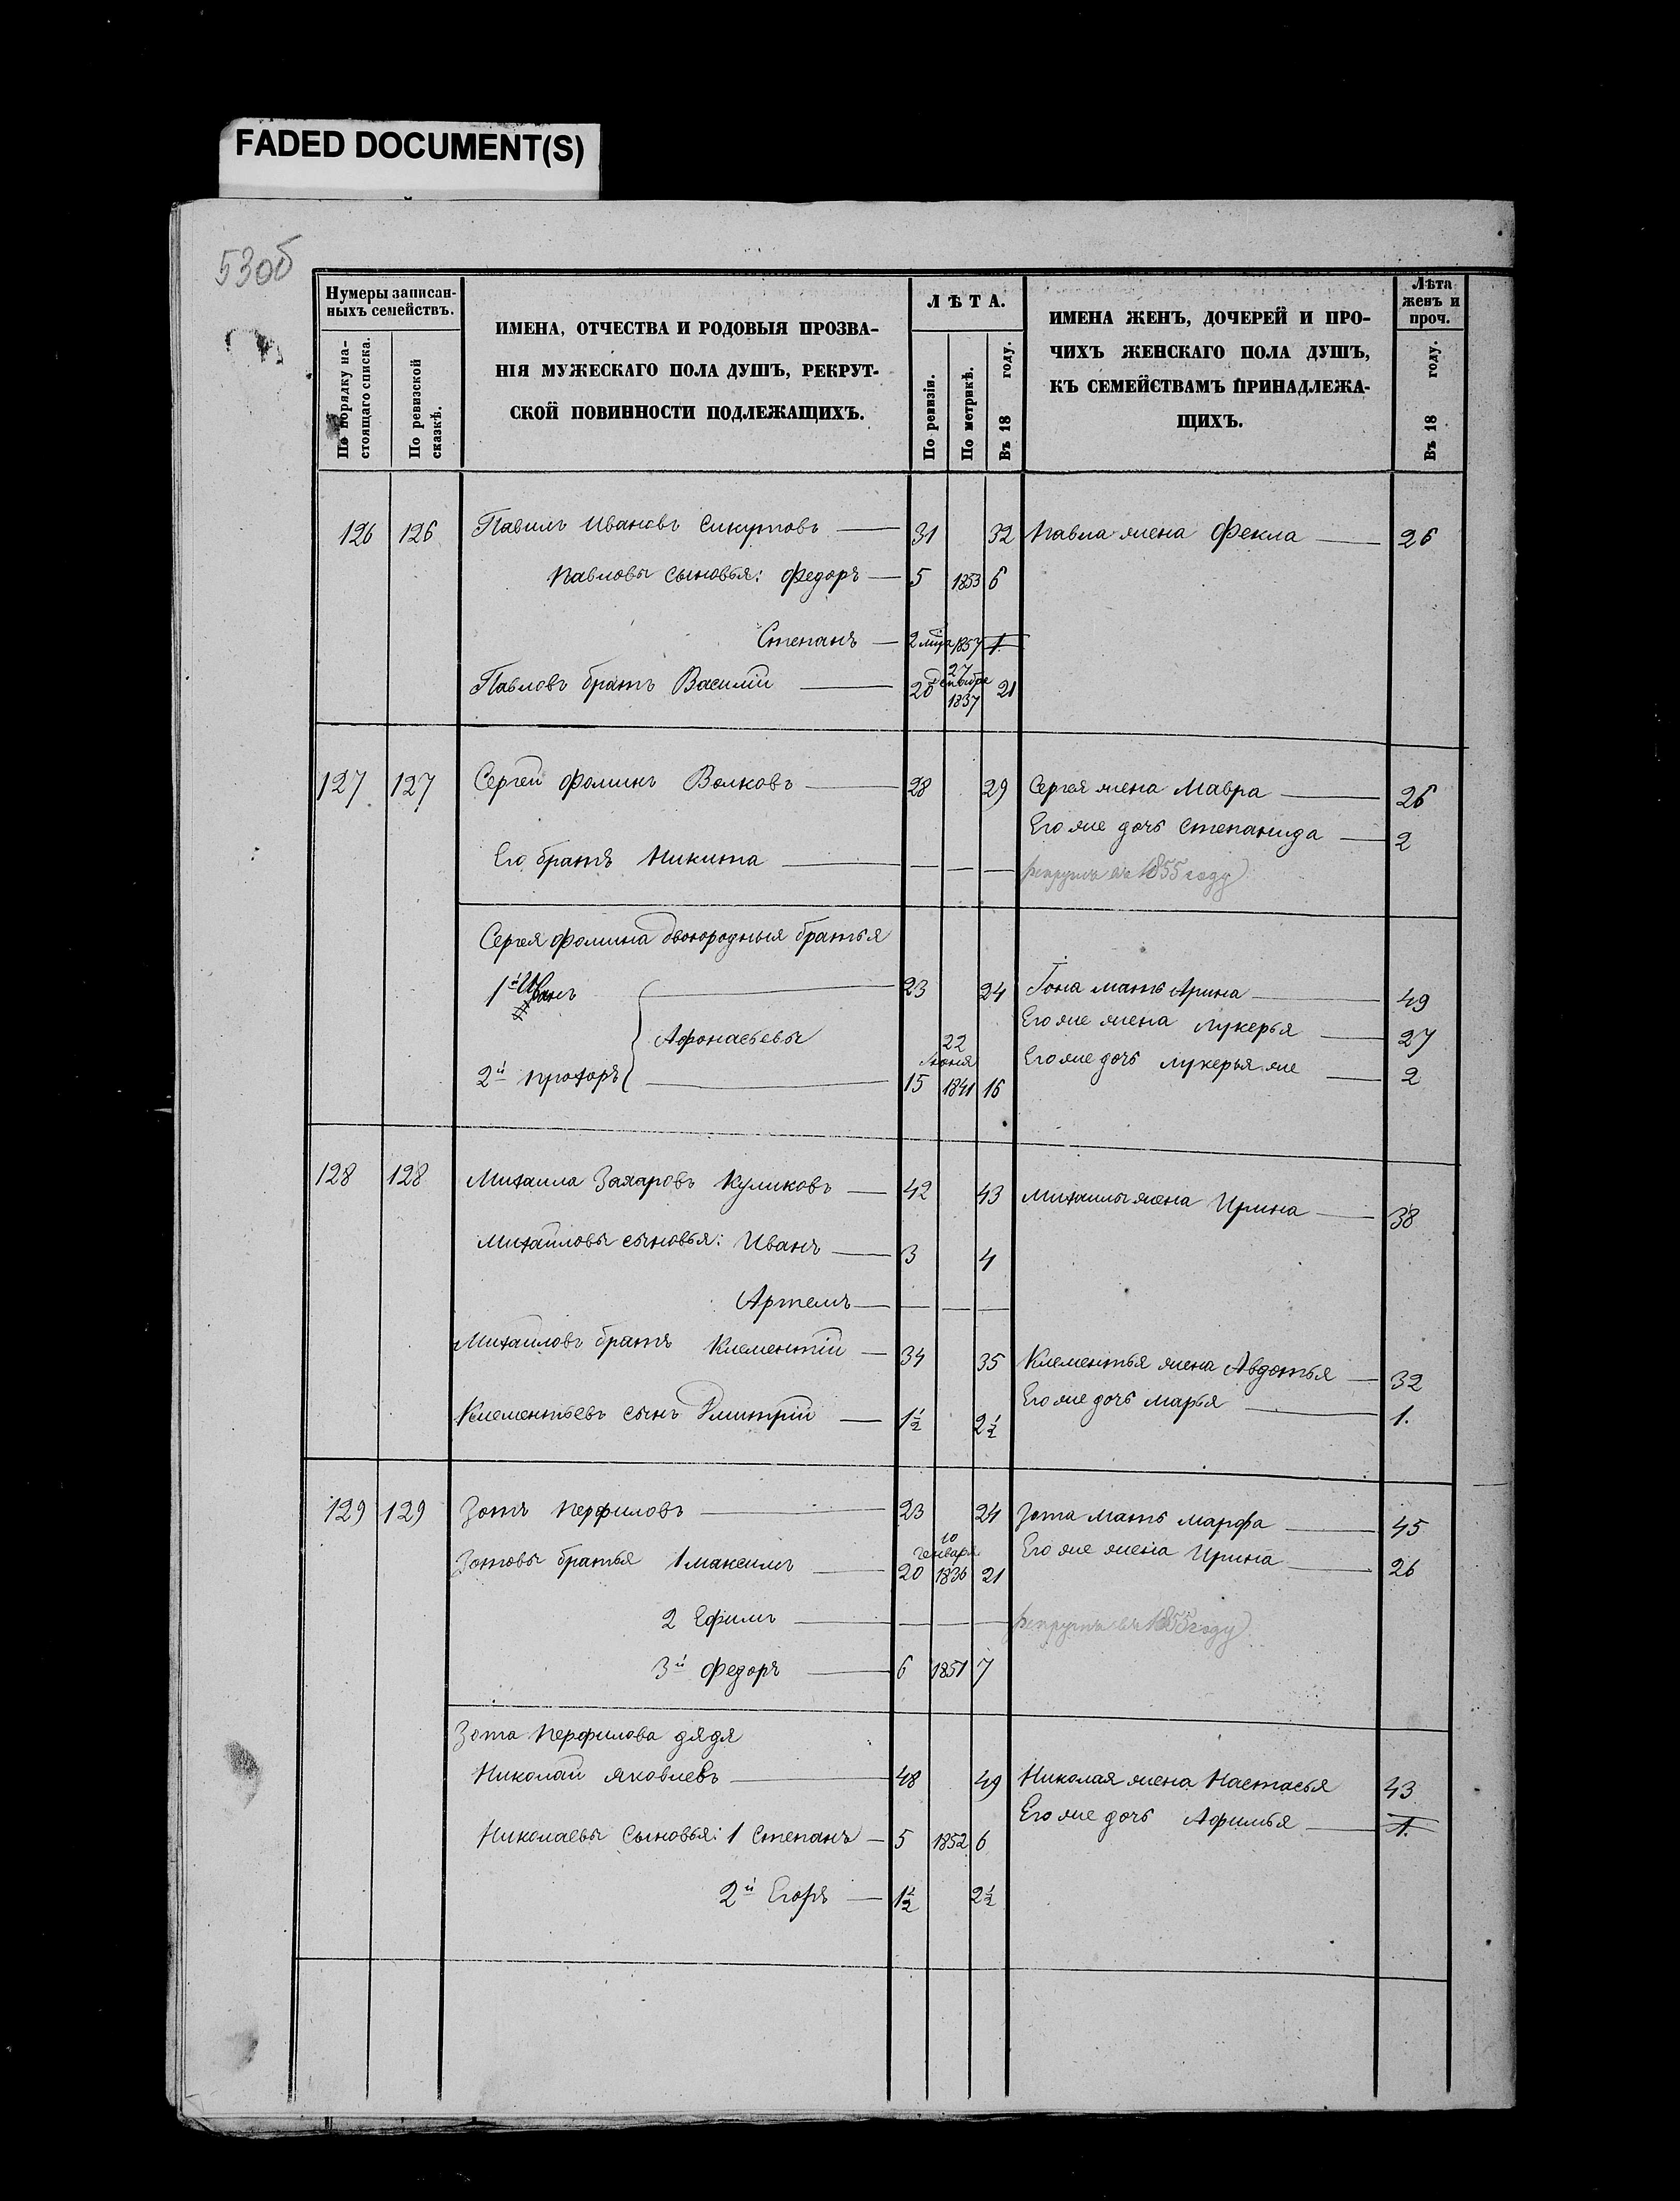 FADED DOCUMENT(S)
530б
Нумеры записан-
ныхъ семействъ.
По порядку на-
стоящаго списка.
По ревизской
сказкѣ.
ИМЕНА, ОТЧЕСТВА И РОДОВЫЯ ПРОЗВА-
НІЯ МУЖЕСКАГО ПОЛА ДУШЪ, РЕКРУТ-
СКОЙ ПОВИННОСТИ ПОДЛЕЖАЩИХЪ.
ЛѢТА.
По ревизіи.
По метрикѣ.
Въ 18 году.
ИМЕНА ЖЕНЪ, ДОЧЕРЕЙ И ПРО-
ЧИХЪ ЖЕНСКАГО ПОЛА ДУШЪ,
КЪ СЕМЕЙСТВАМЪ ПРИНАДЛЕЖА-
ЩИХЪ.
Лѣта
женъ и
проч.
Въ 18 году.
126 126 Павилъ Ивановъ 31 32 Павла жена Фекла 26
Павловы сыновья: Федоръ 5 1853 6
Степанъ 2 мца 1857 1
Павловъ братъ Василій 20 27 1837 21
127 127 Сергей Фоминъ Волковъ 28 29 Сергея жена Мавра 26
Его же дочь Степанида 2
Его братъ Никита рекрутъ въ 1855 году
Сергея Фомина двоюродныя братья
1й Иванъ 23 24 мать Арина 49
Его же жена Лукерья 27
Афонасьевы
2й Прохоръ 15 22 Июня 1841 16 Его же дочь Лукерья же 2
128 128 Михаила Захаровъ Куликовъ 42 43 Михаилы жена Ирина 38
Михайловы сыновья: Иванъ 3 4
Артемъ
Михайловъ братъ Клементій 34 35 Клементья жена Авдотья 32
Его же дочь Марья 1.
Клементьевъ сынъ Дмитрій 1½ 2½
129 129 Зотъ Перфиловъ 23 24 Зота мать Марфа 45
Зотовы братья 1 Максимъ 20 10 Генваря 1836 21 Его же жена Ирина 26
2 Ефимъ рекрутъ въ 1855 году
3й Федоръ 6 1851 7
Зота Перфилова дядя
Николай Яковлевъ 48 49 Николая жена Настасья 43
Его же дочь Афимья 1.
Николаевы сыновья: 1 Степанъ 5 1852 6
2й Егоръ 1½ 2½